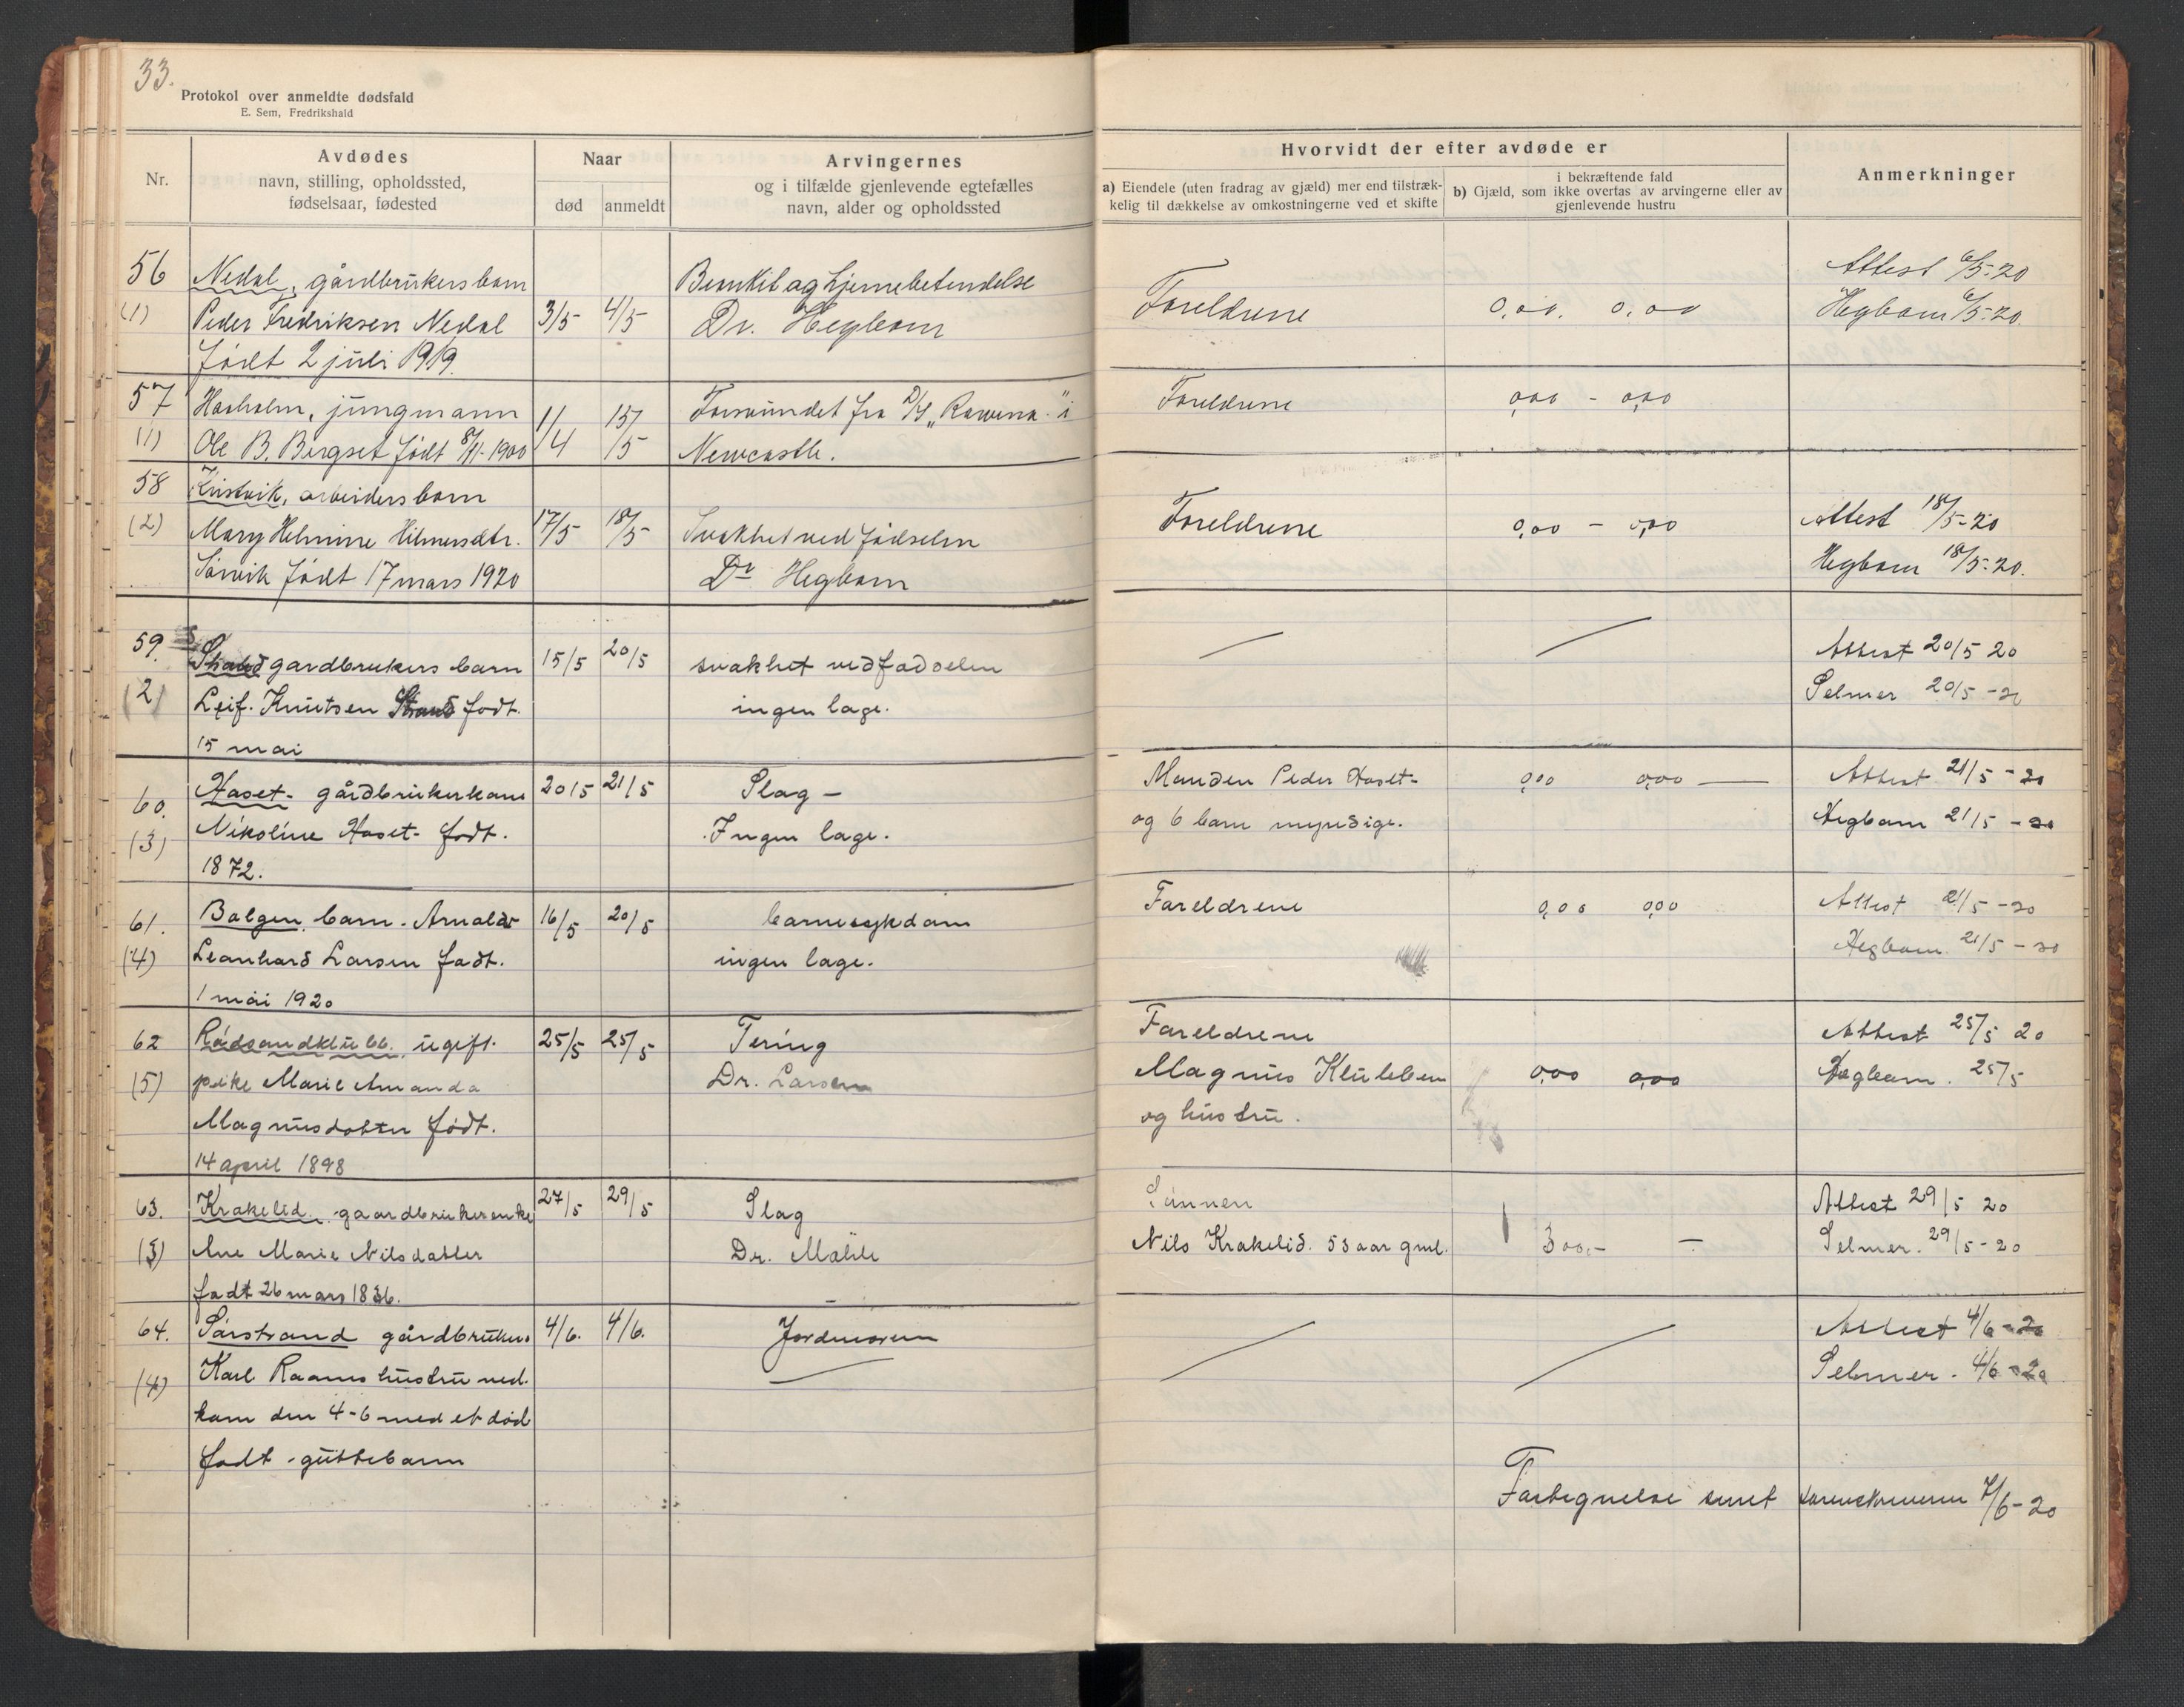 33.
Protokol over anmeldte dødsfald
E. Sem, Fredrikshald
Nr.
Avdødes
navn, stilling, opholdssted,
fødselsaar, fødested
Naar
død
anmeldt
Arvingernes
og i tilfælde gjenlevende egtefælles
navn, alder og opholdssted
Hvorvidt der efter avdøde er
a) Eiendele (uten fradrag av gjæld) mer end tilstræk-
kelig til dækkelse av omkostningerne ved et skifte
i bekræftende fald
b) Gjæld, som ikke overtas av arvingerne eller av
gjenlevende hustru
Anmerkninger
56 Nedal, gårdbrukers barn Bronkit og hjernebetendelse Attest 6/5-20
(1) Peder Fredriksen Nedal 3/5 4/5 Dr. Hegbom Foreldrene 0,00. 0,00 Hegbom 6/5-20.
Født 2 juli 1919.
57 Haaholm, jungmann 11/4 15/5 Forsvundet fra D/S "Rowena" i Foreldrene 0,00 - 0,00
(1) Ole B. Bergset født 8/11-1900 Newcastle.
58 Kristvik, arbeiders barn
(2) Mary Helmine Hilmersdtr. 17/5 18/5 Svakhet ved fødselen Foreldrene 0,00 - 0,00 Attest 18/5-20
Sørvik født 17 mars 1920 Dr Hegbom Hegbom 18/5-20.
59. Strand gardbrukers barn 15/5 20/5 svakhet ved fødselen Attest 20/5 20
(2) Leif. Knutsen Strand født. ingen læge. Selmer 20/5-20
15 mai
60. Haset - gårdbrukerkone 20/5 21/5 Slag - Manden Peder Haset - 0,00 0,00 — Attest 21/5-20
(3) Nikoline Haset - født. Ingen læge. og 6 barn myndige. Hegbom 21/5-20
1872.
61. Bolgen, barn - Arnold 16/5 20/5 barnesykdom Foreldrene 0,00 0,00 Attest 21/5-20
(4) Leonhard Larsen født. ingen læge. Hegbom 21/5-20
1 mai 1920
62 Rådsandklubb. ugift. 25/5 25/5 Tering Foreldrene Attest 25/5 20
(5) pike Marie Amanda Dr. Larsen Magnus Klubben 0,00 0,00 Hegbom. 25/5
Magnusdatter født. og hustru.
14 april 1898
63. Krakelid. gaardbrukerenke 27/5 29/5 Slag Sønnen Attest 29/5 20
(3) Ane Marie Nilsdatter Dr. Mæhle Nils Krakelid. 53 aar gml. 300,- - Selmer. 29/5-20
født 26 mars 1836.
64. Sørstrand gårdbruker 4/6. 4/6. Jordmoren Attest 4/6-20
(4) Karl Raanes hustru ned- Selmer. 4/6-20
kom den 4-6 med et død
født - guttebarn
Fortegnelse sendt sorenskriveren 7/6-20